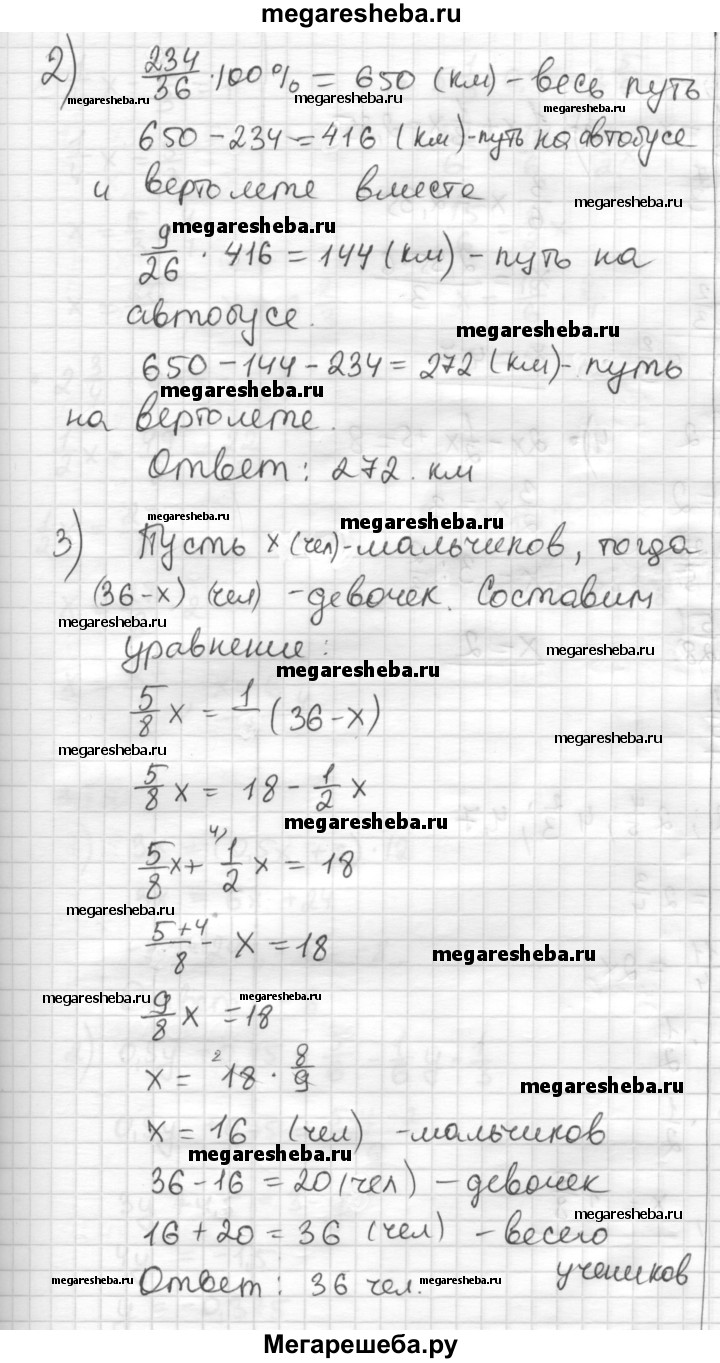 megaresheba.ru
2) 234/36 · 100% = 650 (км) - весь путь
megaresheba.ru megaresheba.ru megaresheba.ru
650 - 234 = 416 (км) - путь на автобусе
и вертолете вместе
megaresheba.ru
megaresheba.ru
9/26 · 416 = 144 (км) - путь на
автобусе.
megaresheba.ru
650 - 144 - 234 = 272 (км) - путь
megaresheba.ru
на вертолете.
Ответ: 272. км
megaresheba.ru megaresheba.ru
3) Пусть x (чел) - мальчиков, тогда
(36-x) (чел) - девочек. Составим
megaresheba.ru
уравнение:
megaresheba.ru
megaresheba.ru
5/8 x = 1/ (36-x)
megaresheba.ru
megaresheba.ru
5/8 x = 18 - 1/2 x
megaresheba.ru
5/8 x + 4) 1/2 x = 18
megaresheba.ru
5+4/8 x = 18
megaresheba.ru
megaresheba.ru megaresheba.ru
9/8 x = 18
x = 2 18 · 8/9
megaresheba.ru
x = 16 (чел) - мальчиков
megaresheba.ru
36 - 16 = 20 (чел) - девочек
megaresheba.ru
16 + 20 = 36 (чел) - весего
учеников
megaresheba.ru Ответ: 36 чел. megaresheba.ru
Мегарешеба.ру